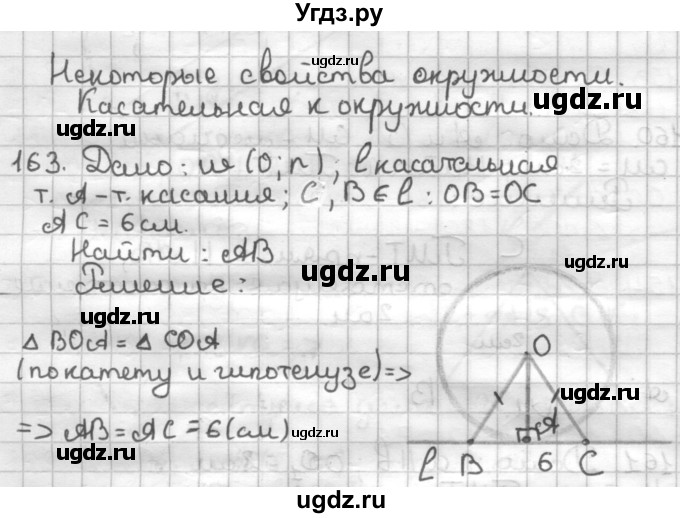 Угдз.ру
ugdz.ru
Некоторые свойства окружности.
Касательная к окружности.
ugdz.ru ugdz.ru
163. Дано: w (O; r); l касательная
т. A - т. касания; C, B ∈ l : OB = OC
AC = 6 см.
ugdz.ru
Найти : AB
ugdz.ru
Решение :
ugdz.ru
△ BOA = △ COA
(по катету и гипотенузе) =>
ugdz.ru
=> AB = AC = 6 (см)
ugdz.ru
O
A
l B 6 C
ugdz.ru
ugdz.ru